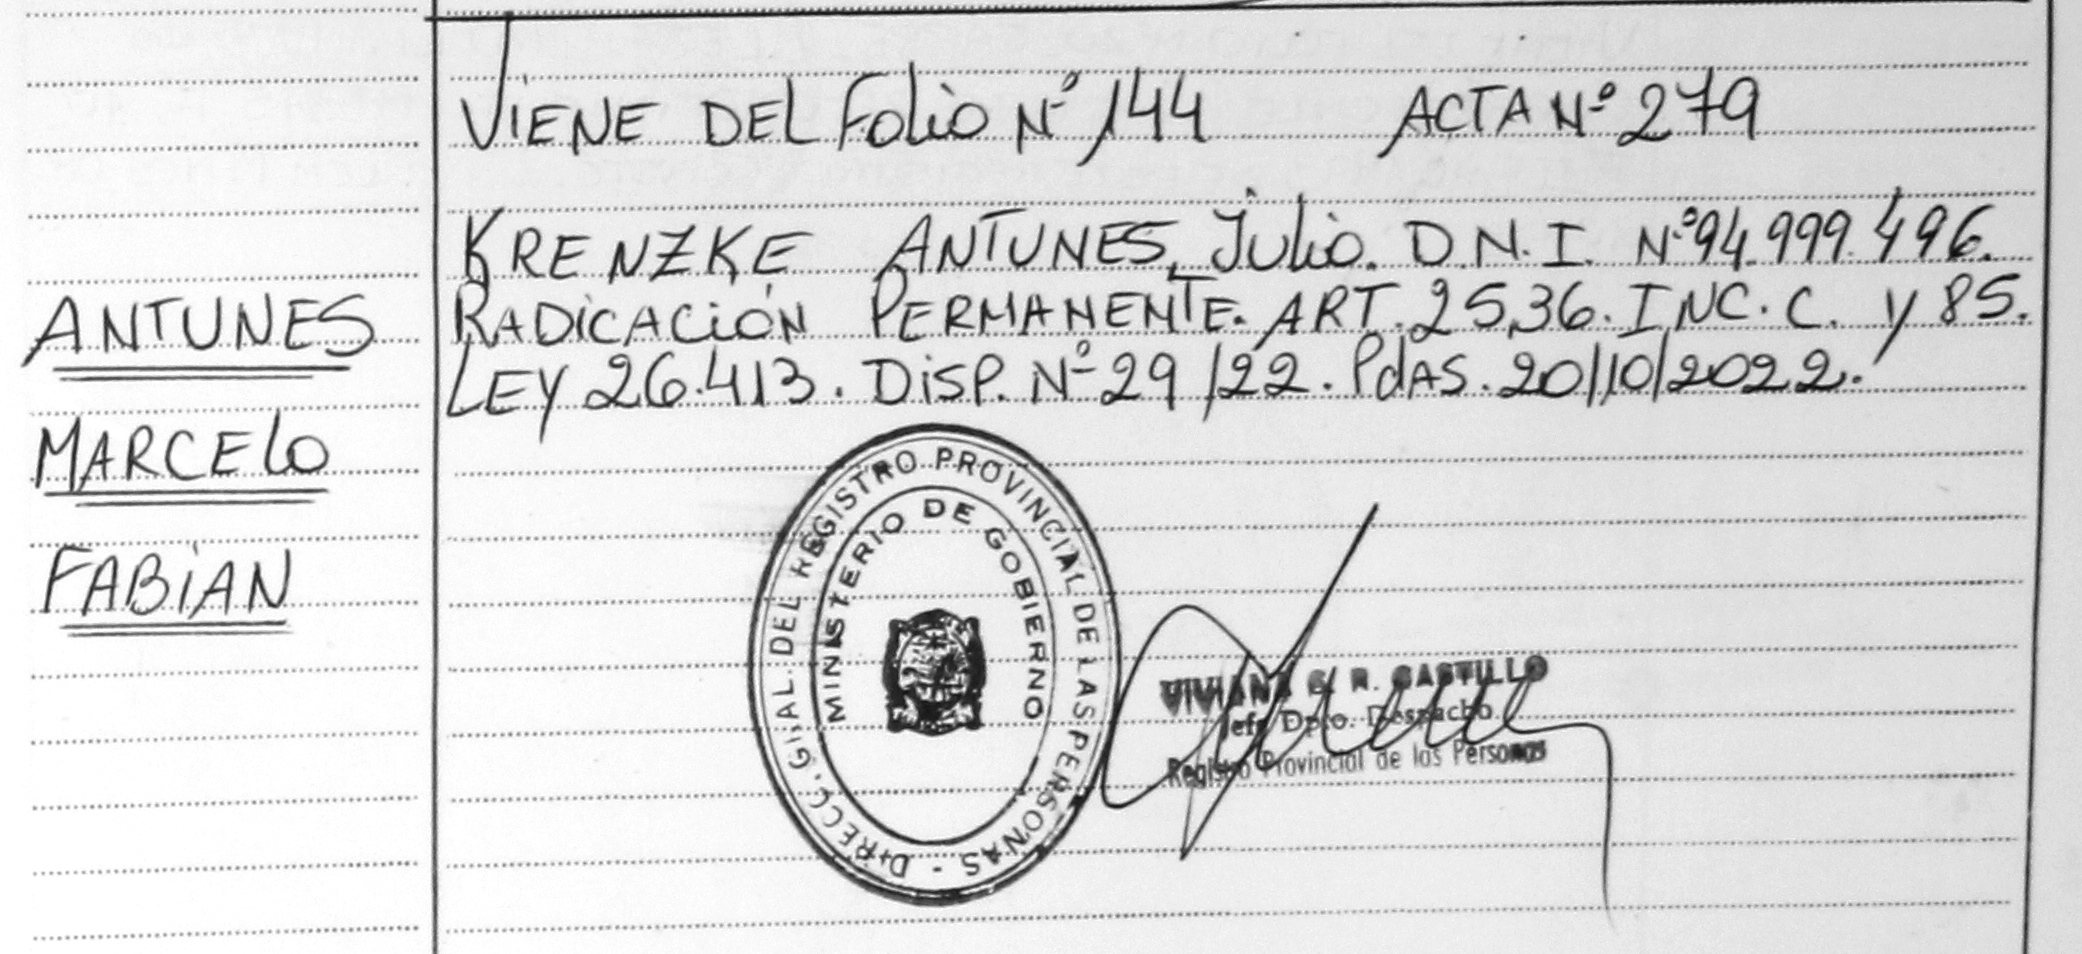 VIENE DEL Folio Nº 144 ACTA Nº 279
KRENZKE ANTUNES, Julio. D.N.I. Nº 94.999.496.
RADICACIÓN PERMANENTE. ART. 25,36. INC. C. y 85.
LEY 26.413. DISP. Nº 29/22. PdAS. 20/10/2022.
ANTUNES
MARCELO
FABIAN
DIRECC. GRAL. DEL REGISTRO PROVINCIAL DE LAS PERSONAS -
MINISTERIO DE GOBIERNO
VIVIANA R. CASTILLO
Jefe Dpto. Despacho
Registro Provincial de las Personas